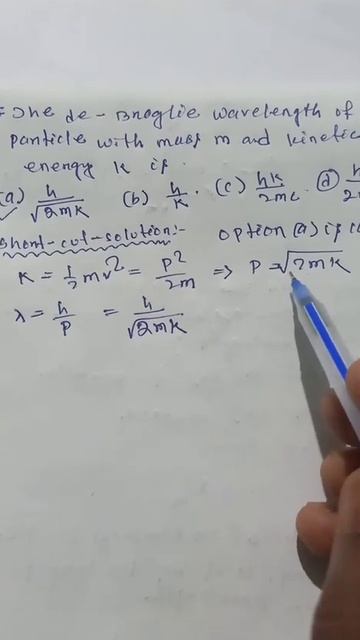 The de-Broglie wavelength of
particle with mass m and kinetic
energy K is.
(a) h/√2mK (b) h/K. (c) hK/2mc (d)
Short-cut-solution:- option (a) is
K = 1/2 mv² = P²/2m => P = √2mK
λ = h/P = h/√2mK